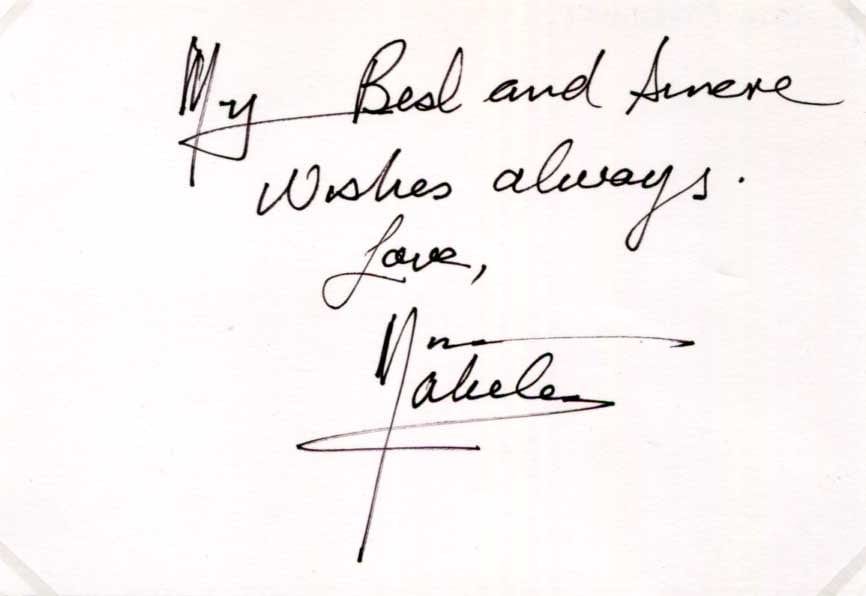 My Best and Sincere
Wishes always.
Love,